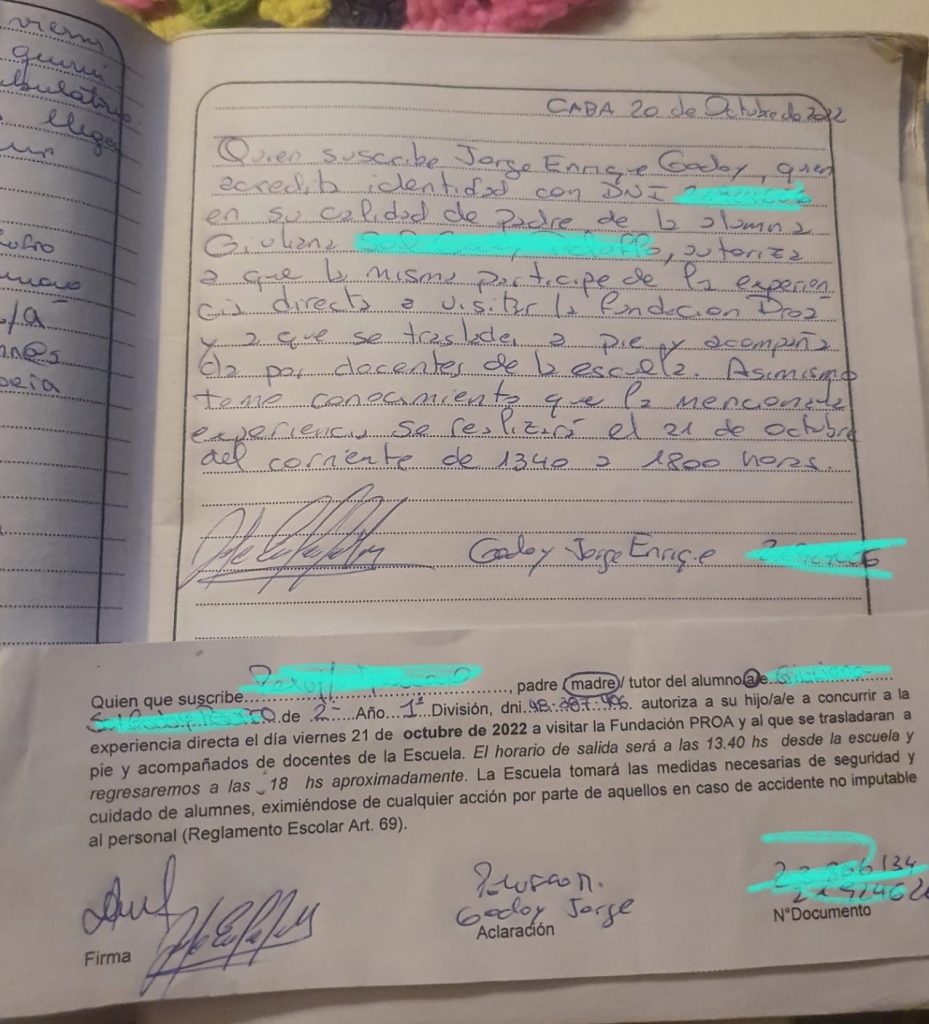 viern
llegar
CABA 20 de Octubre de 2022
Quien suscribe Jorge Enrique Godoy, quien
acredita identidad con DNI
en su calidad de padre de la alumna
Giuliana autoriza
a que la misma participe de la experien
cia directa a visitar la Fundacion Proa
y a que se traslade a pie y acompaña
da por docentes de la escuela. Asimismo
tomo conocimiento que la mencionada
experiencia se realizará el 21 de octubre
del corriente de 1340 a 1800 horas.
Godoy Jorge Enrique
Quien que suscribe, padre / madre/ tutor del alumno/a/e
de 2º Año 1º División, dni. autoriza a su hijo/a/e a concurrir a la
experiencia directa el día viernes 21 de octubre de 2022 a visitar la Fundación PROA y al que se trasladaran a
pie y acompañados de docentes de la Escuela. El horario de salida será a las 13.40 hs desde la escuela y
regresaremos a las 18 hs aproximadamente. La Escuela tomará las medidas necesarias de seguridad y
cuidado de alumnes, eximiéndose de cualquier acción por parte de aquellos en caso de accidente no imputable
al personal (Reglamento Escolar Art. 69).
Godoy Jorge
Firma Aclaración N°Documento